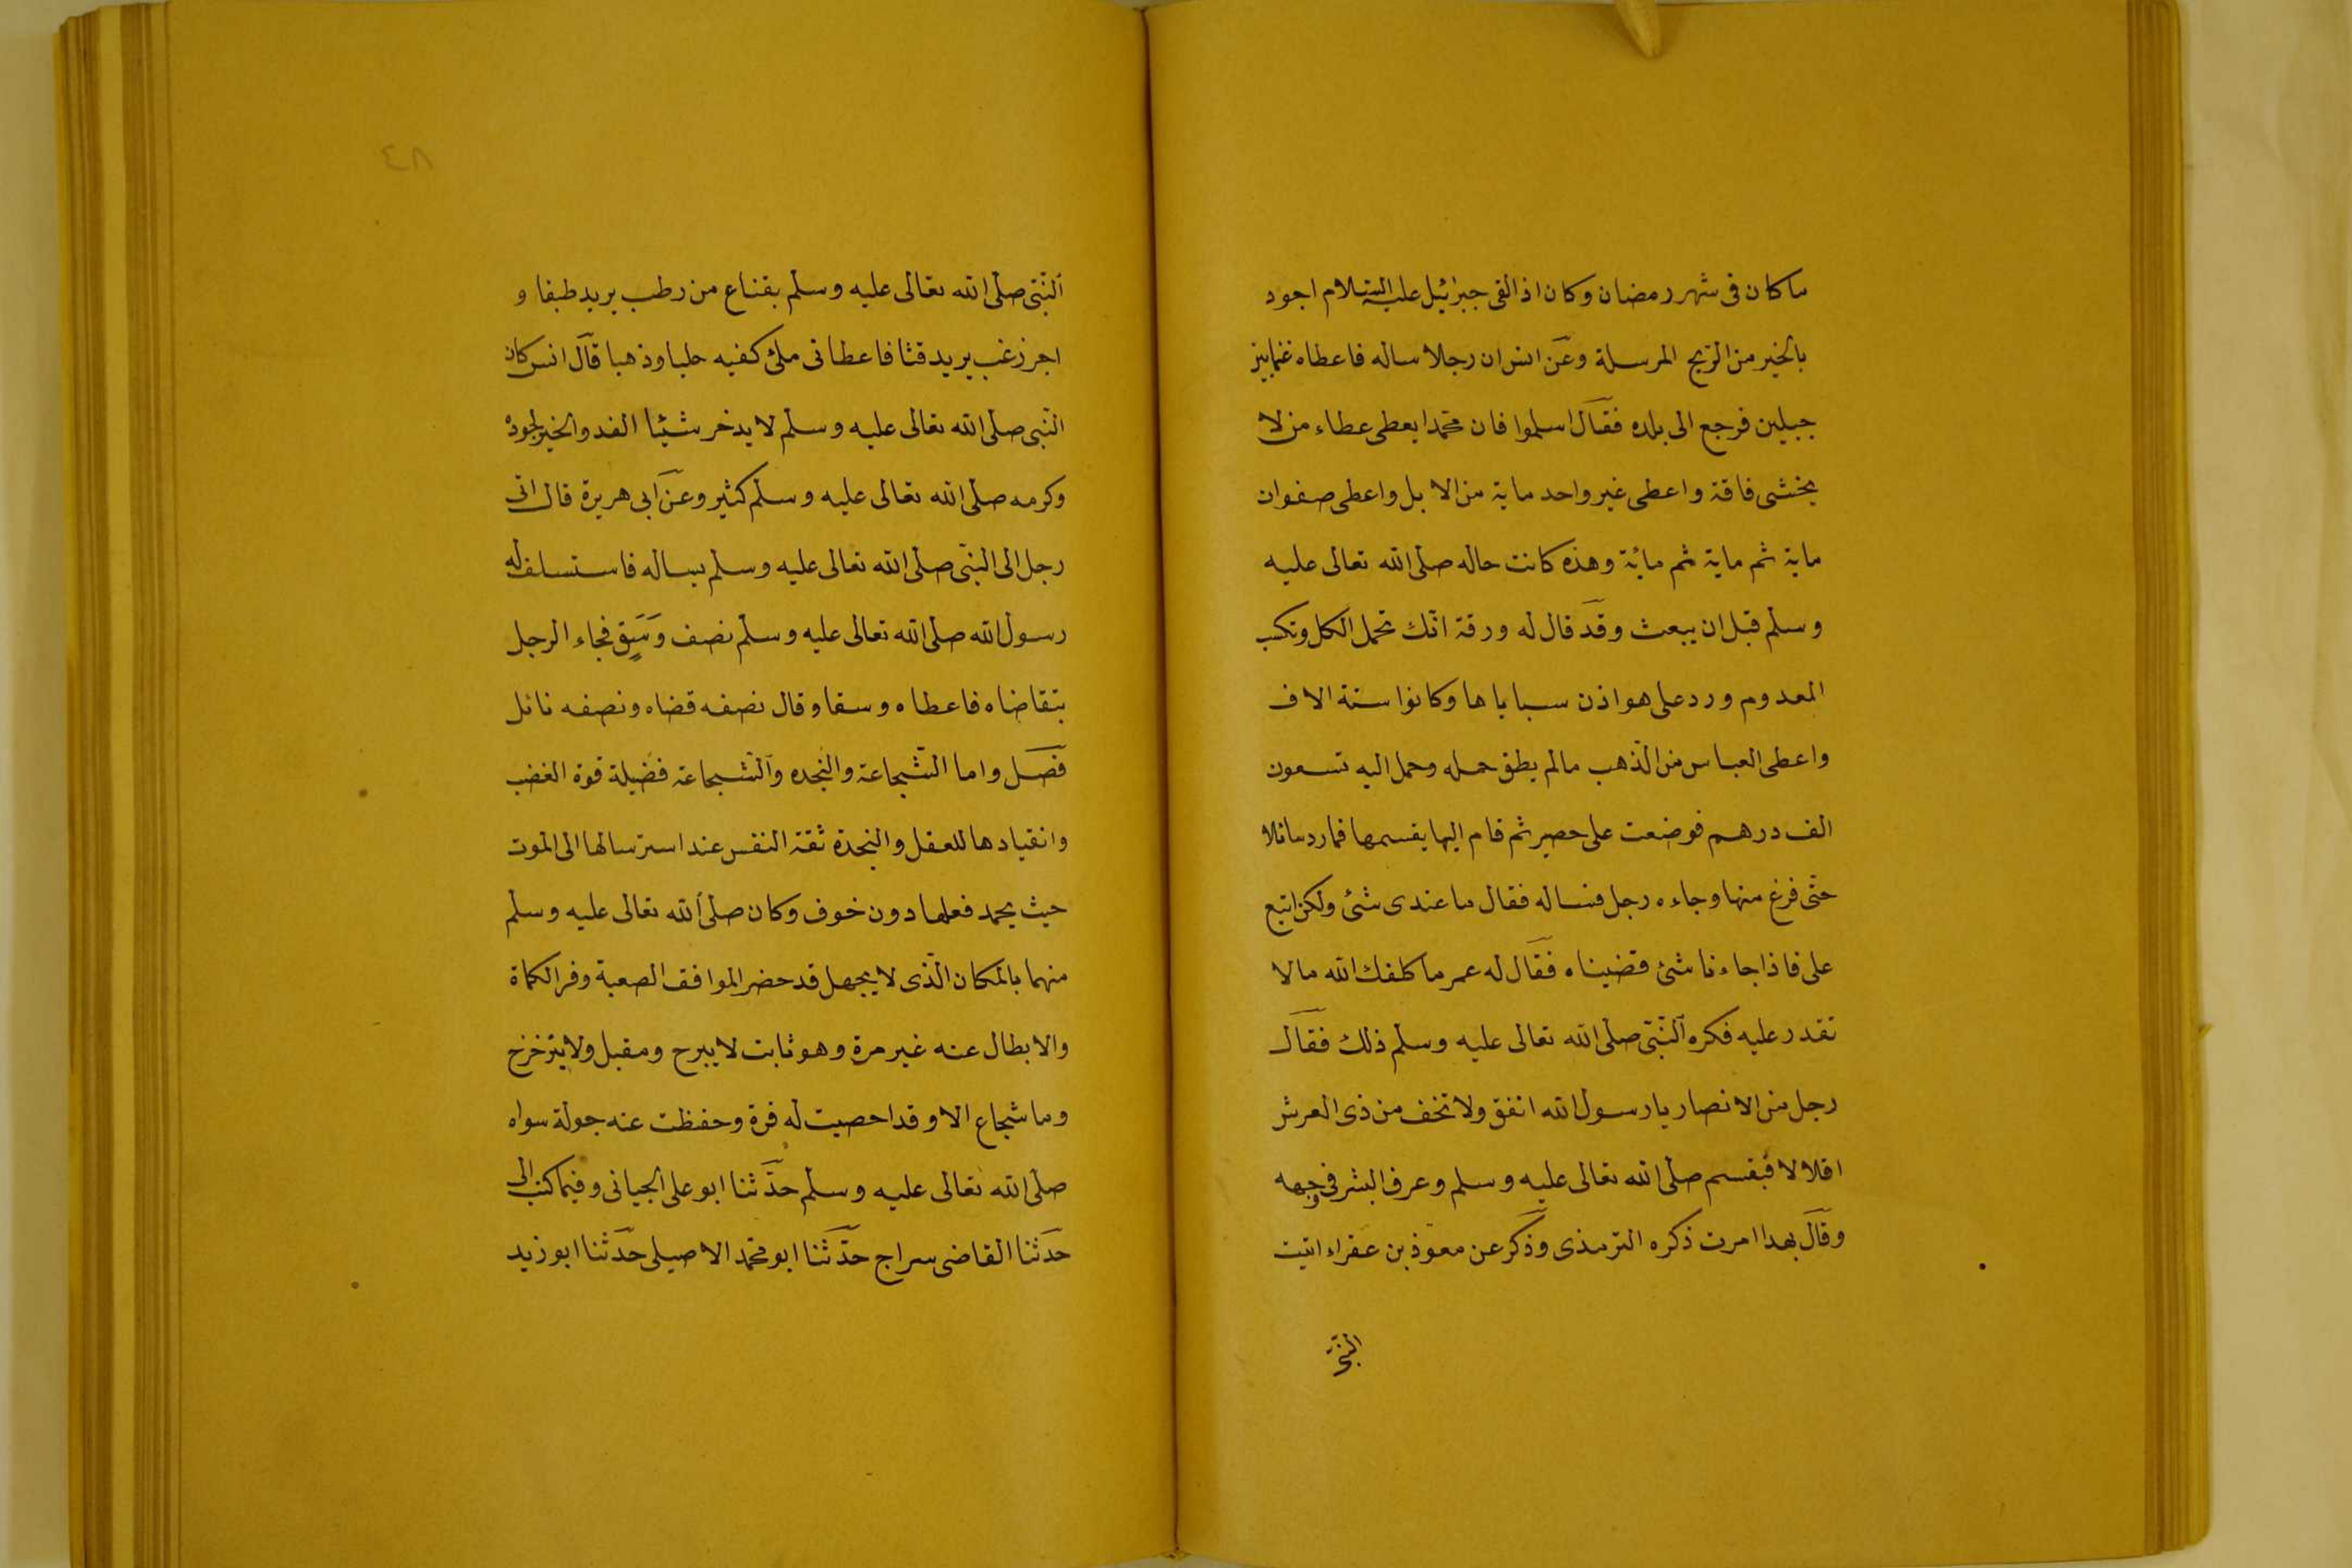 ما كان فى شهر رمضان وكان اذا لقى جبرائيل عليه السلام اجود
بالخير من الريح المرسلة وعن انس ان رجلا ساله فاعطاه غنما بين
جبلين فرجع الى بلده فقال اسلموا فان محمدا يعطى عطاء من لا
يخشى فاقة واعطى غير واحد ماية من الابل واعطى صفوان
ماية ثم ماية ثم مائة وهذه كانت حاله صلى الله تعالى عليه
وسلم قبل ان يبعث وقد قال له ورقة انك تحمل الكل وتكسب
المعدوم ورد على هواذن سباياها وكانوا ستة الاف
واعطى العباس من الذهب مالم يطق حمله وحمل اليه تسعون
الف درهم فوضعت على حصير ثم قام اليها يقسمها فما رد سائلا
حتى فرغ منها وجاءه رجل فساله فقال ما عندى شئ ولكن اتبع
على فاذا جاءنا شئ قضيناه فقال له عمر ما كلفك الله مالا
تقدر عليه فكره النبى صلى الله تعالى عليه وسلم ذلك فقال
رجل من الانصار يا رسول الله انفق ولا تخف من ذى العرش
اقلالا فتبسم صلى الله تعالى عليه وسلم وعرف البشر فى وجهه
وقال بهذا امرت ذكره الترمذى وذكر عن معوذ بن عفراء اتيت
النبى
٤٨
النبى صلى الله تعالى عليه وسلم بقناع من رطب يريد طبقا و
اجر زغب يريد قثا فاعطانى ملئ كفيه حليا وذهبا قال انس كان
النبى صلى الله تعالى عليه وسلم لا يدخر شيئا لغد والخبر بجوده
وكرمه صلى الله تعالى عليه وسلم كثير وعن ابى هريرة قال اتى
رجل الى النبى صلى الله تعالى عليه وسلم يساله فاستسلف له
رسول الله صلى الله تعالى عليه وسلم نصف وَسَقٍ فجاء الرجل
يتقاضاه فاعطاه وسقا وقال نصفه قضاه ونصفه نائل
فصل واما الشجاعة والنجده والشجاعة فضيلة قوة الغضب
وانقيادها للعقل والنجدة ثقة النفس عند استرسالها الى الموت
حيث يحمد فعلها دون خوف وكان صلى الله تعالى عليه وسلم
منهما بالمكان الذى لا يجهل قد حضر المواقف الصعبة وفر الكماة
والابطال عنه غير مرة وهو ثابت لا يبرح ومقبل ولا يتزخزح
وما شجاع الا وقد احصيت له فرة وحفظت عنه جولة سواه
صلى الله تعالى عليه وسلم حدثنا ابو على الجيانى وفيما كتب الى
حدثنا القاضى سراج حدثنا ابو محمد الاصيلى حدثنا ابو زيد